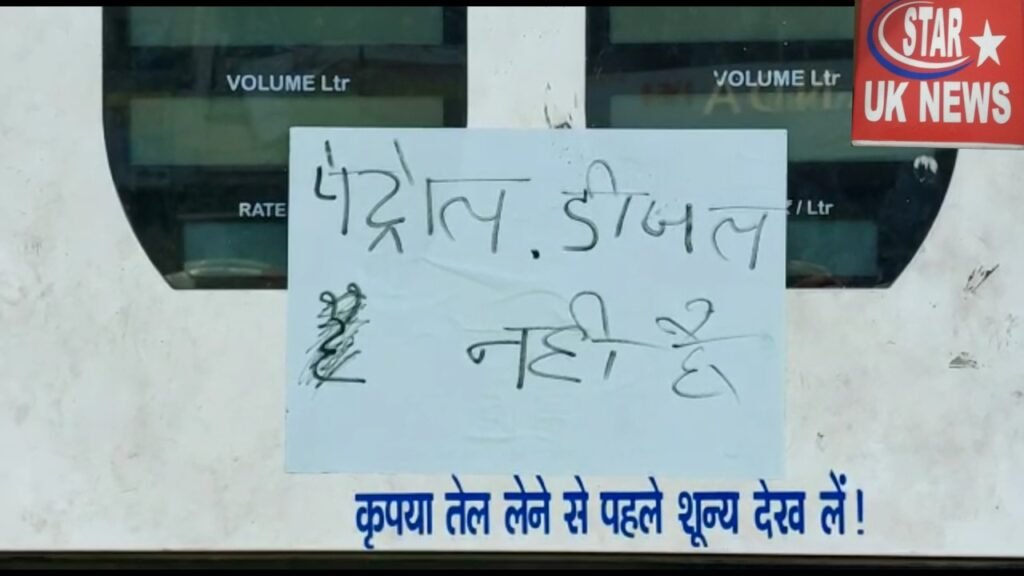 STAR
UK NEWS
VOLUME Ltr
VOLUME Ltr
RATE
/ Ltr
पेट्रोल . डीजल
नही है
कृपया तेल लेने से पहले शून्य देख लें!